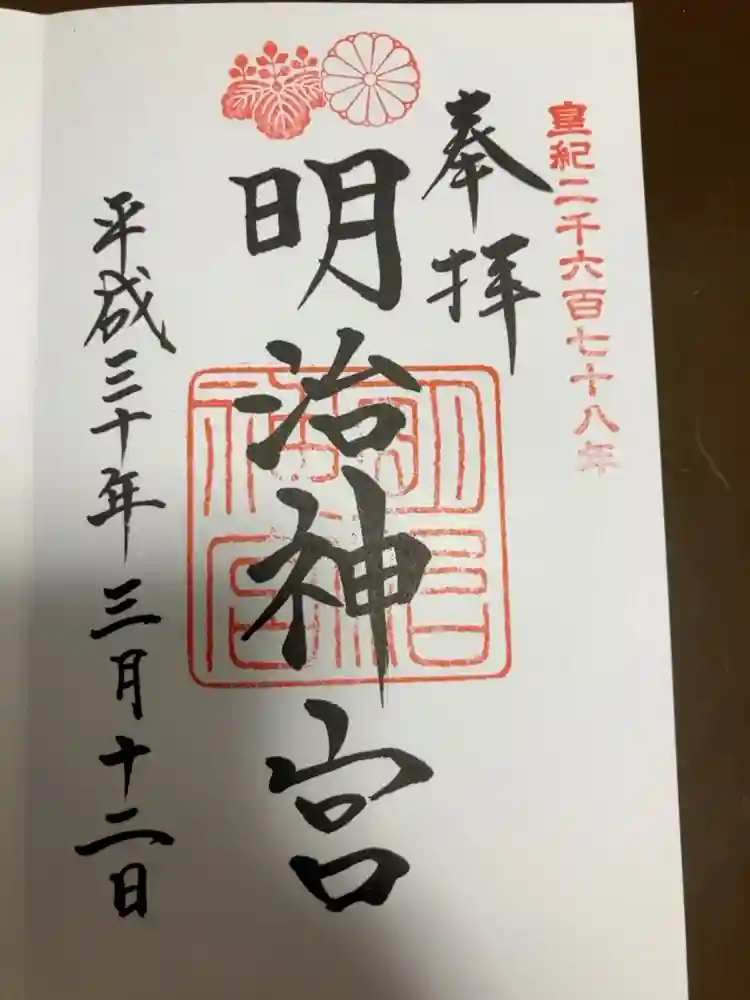 皇紀二千六百七十八年
奉拝
明治神宮
平成三十年三月十二日